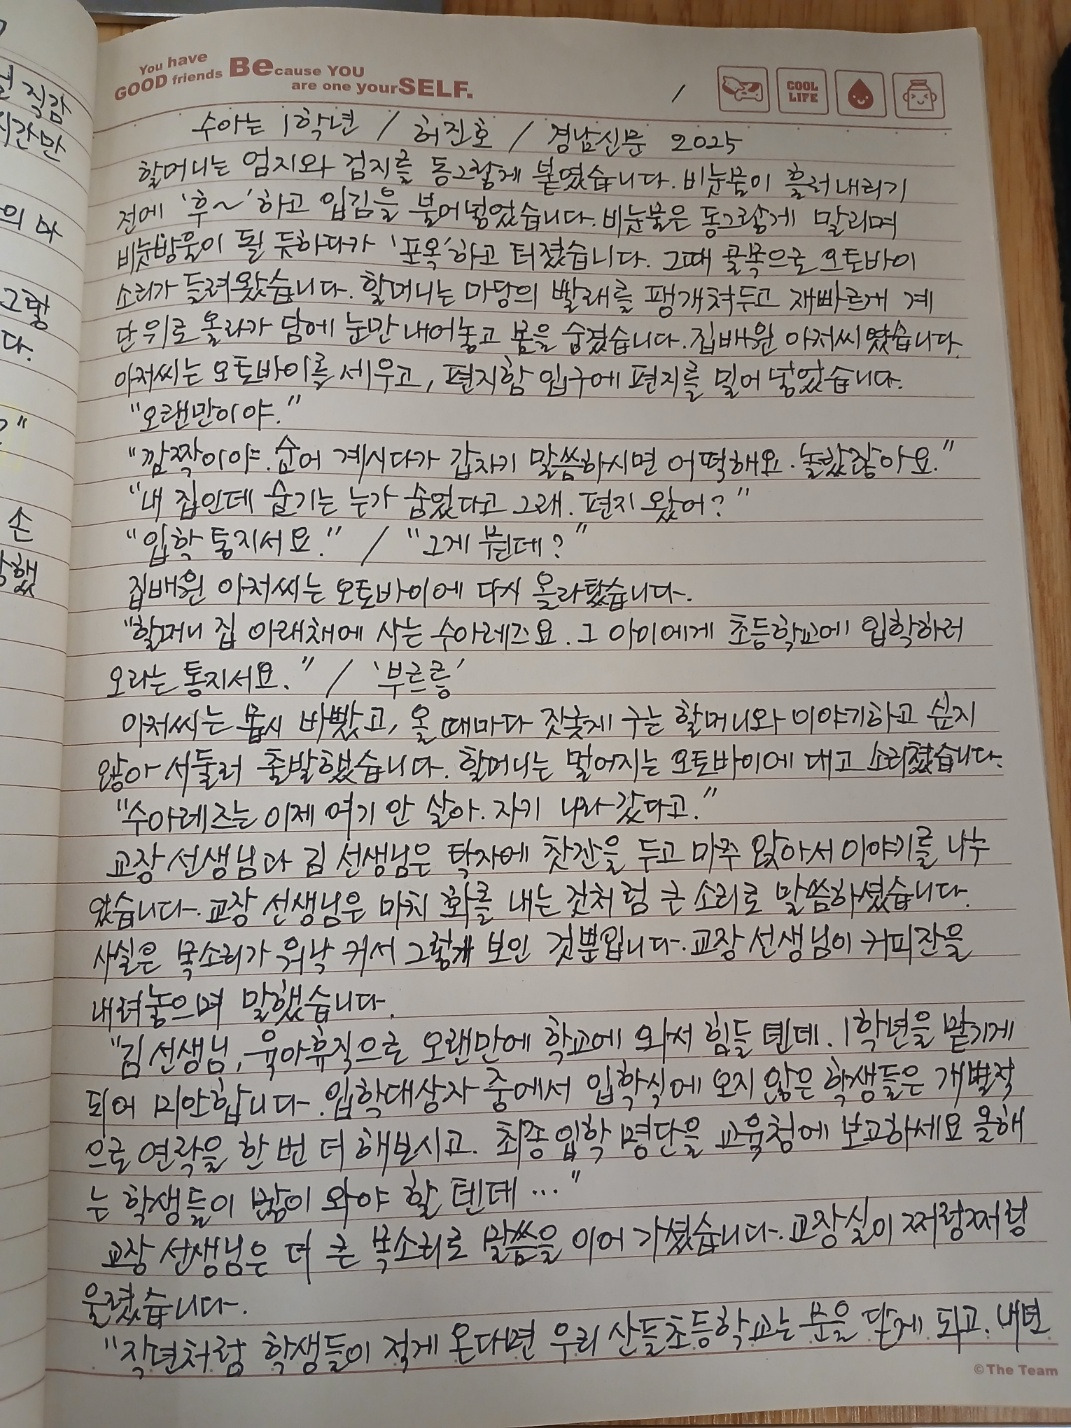 You have
GOOD friends Because YOU
are one yourSELF.
COOL LIFE
수아는 1학년 / 허진호 / 경남신문 2025
할머니는 엄지와 검지를 동그랗게 붙였습니다. 비눗물이 흘러내리기
전에 '후~'하고 입김을 불어넣었습니다. 비눗물은 동그랗게 말리며
비눗방울이 될 듯하다가 '포옥'하고 터졌습니다. 그때 골목으로 오토바이
소리가 들려왔습니다. 할머니는 마당의 빨래를 팽개쳐두고 재빠르게 계
단 위로 올라가 담에 눈만 내어놓고 몸을 숨겼습니다. 집배원 아저씨였습니다.
아저씨는 오토바이를 세우고, 편지함 입구에 편지를 밀어 넣었습니다.
"오랜만이야."
"깜짝이야. 숨어 계시다가 갑자기 말씀하시면 어떡해요. 놀랐잖아요."
"내 집인데 숨기는 누가 숨었다고 그래. 편지 왔어?"
"입학 통지서요." / "그게 뭔데?"
집배원 아저씨는 오토바이에 다시 올라탔습니다.
"할머니 집 아래채에 사는 수아레즈요. 그 아이에게 초등학교에 입학하러
오라는 통지서요." / '부르릉'
아저씨는 몹시 바빴고, 올 때마다 짓궂게 구는 할머니와 이야기하고 싶지
않아 서둘러 출발했습니다. 할머니는 멀어지는 오토바이에 대고 소리쳤습니다.
"수아레즈는 이제 여기 안 살아. 자기 나라 갔다고."
교장 선생님과 김 선생님은 탁자에 찻잔을 두고 마주 앉아서 이야기를 나누
었습니다. 교장 선생님은 마치 화를 내는 것처럼 큰 소리로 말씀하셨습니다.
사실은 목소리가 워낙 커서 그렇게 보인 것뿐입니다. 교장 선생님이 커피잔을
내려놓으며 말했습니다.
"김 선생님, 육아휴직으로 오랜만에 학교에 와서 힘들 텐데. 1학년을 맡기게
되어 미안합니다. 입학대상자 중에서 입학식에 오지 않은 학생들은 개별적
으로 연락을 한 번 더 해보시고. 최종 입학 명단을 교육청에 보고하세요 올해
는 학생들이 많이 와야 할 텐데 ..."
교장 선생님은 더 큰 목소리로 말씀을 이어 가셨습니다. 교장실이 쩌렁쩌렁
울렸습니다.
"작년처럼 학생들이 적게 온다면 우리 산들초등학교는 문을 닫게 되고. 내년
©The Team